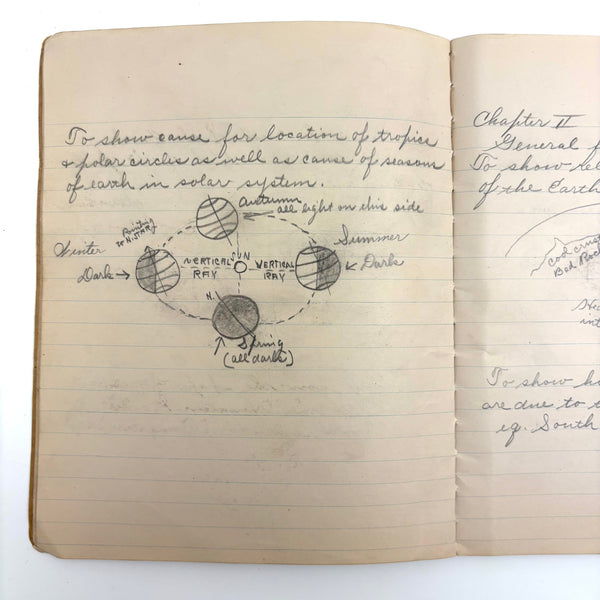 To show cause for location of tropics
& polar circles as well as cause of seasons
of earth in solar system.
Autumn
all light on this side
Pointing
to N. STAR
Winter
Summer
Dark →
VERTICAL
RAY
SUN
VERTICAL
RAY
← Dark
N.
Spring
(all dark)
Chapter II
General
To show rel
of the Earth
cool crust
Bed Roc
int
To show ho
are due to t
eg. South